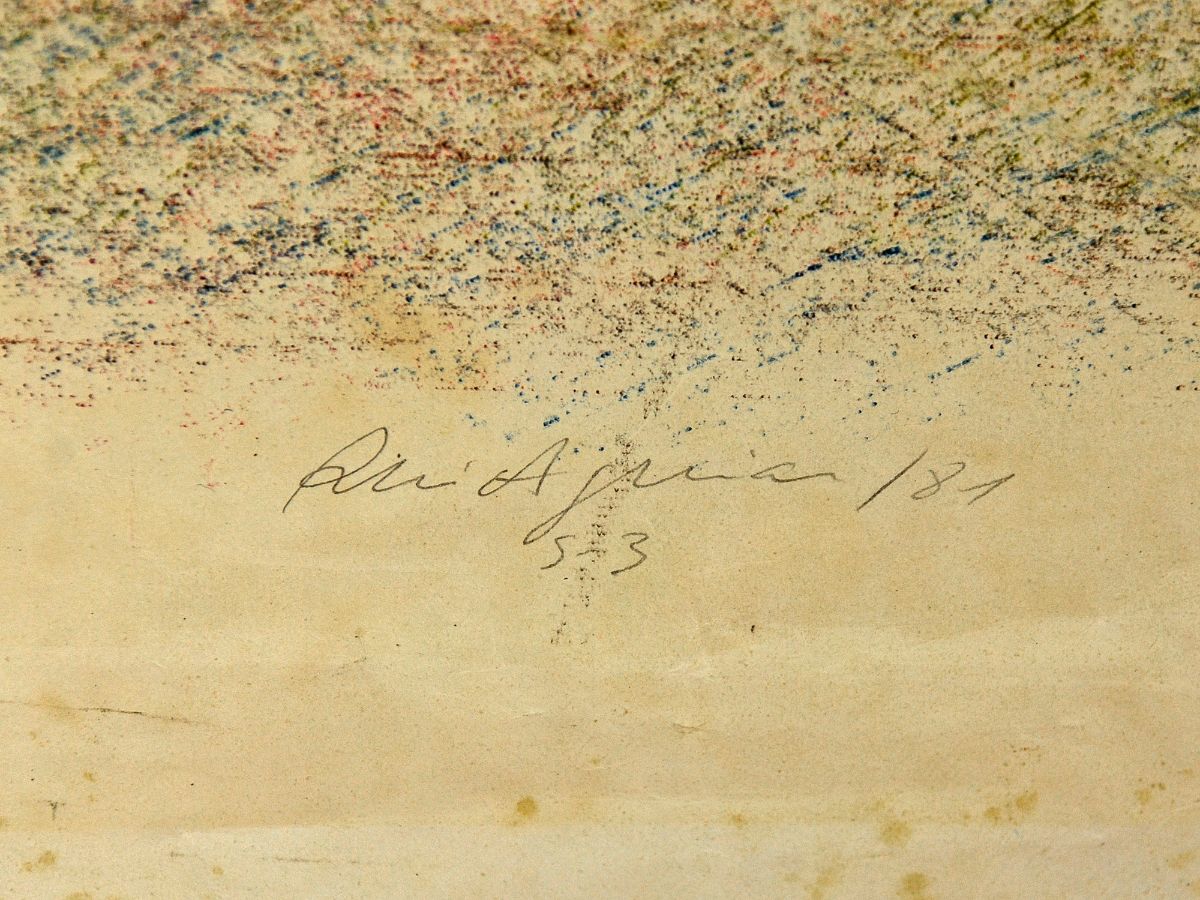 Rui Aguiar /81
5-3